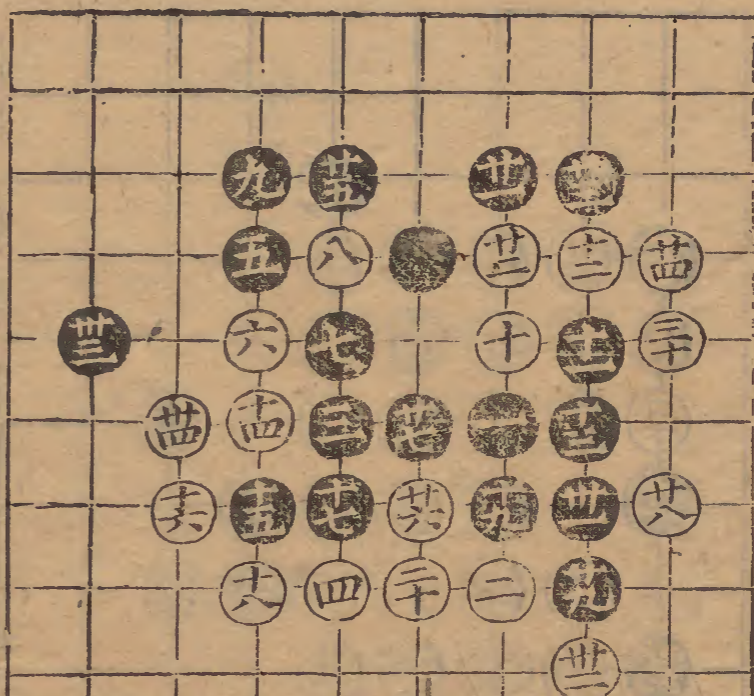 九 廿五 廿一 廿三
五 八 廿二 十二 廿四
卅三 六 七 十 十一 三十
卅四 十四 三 廿七 一 十三
十六 十五 十七 廿六 十九 卅一 廿八
十八 四 二十 二 廿九
卅二